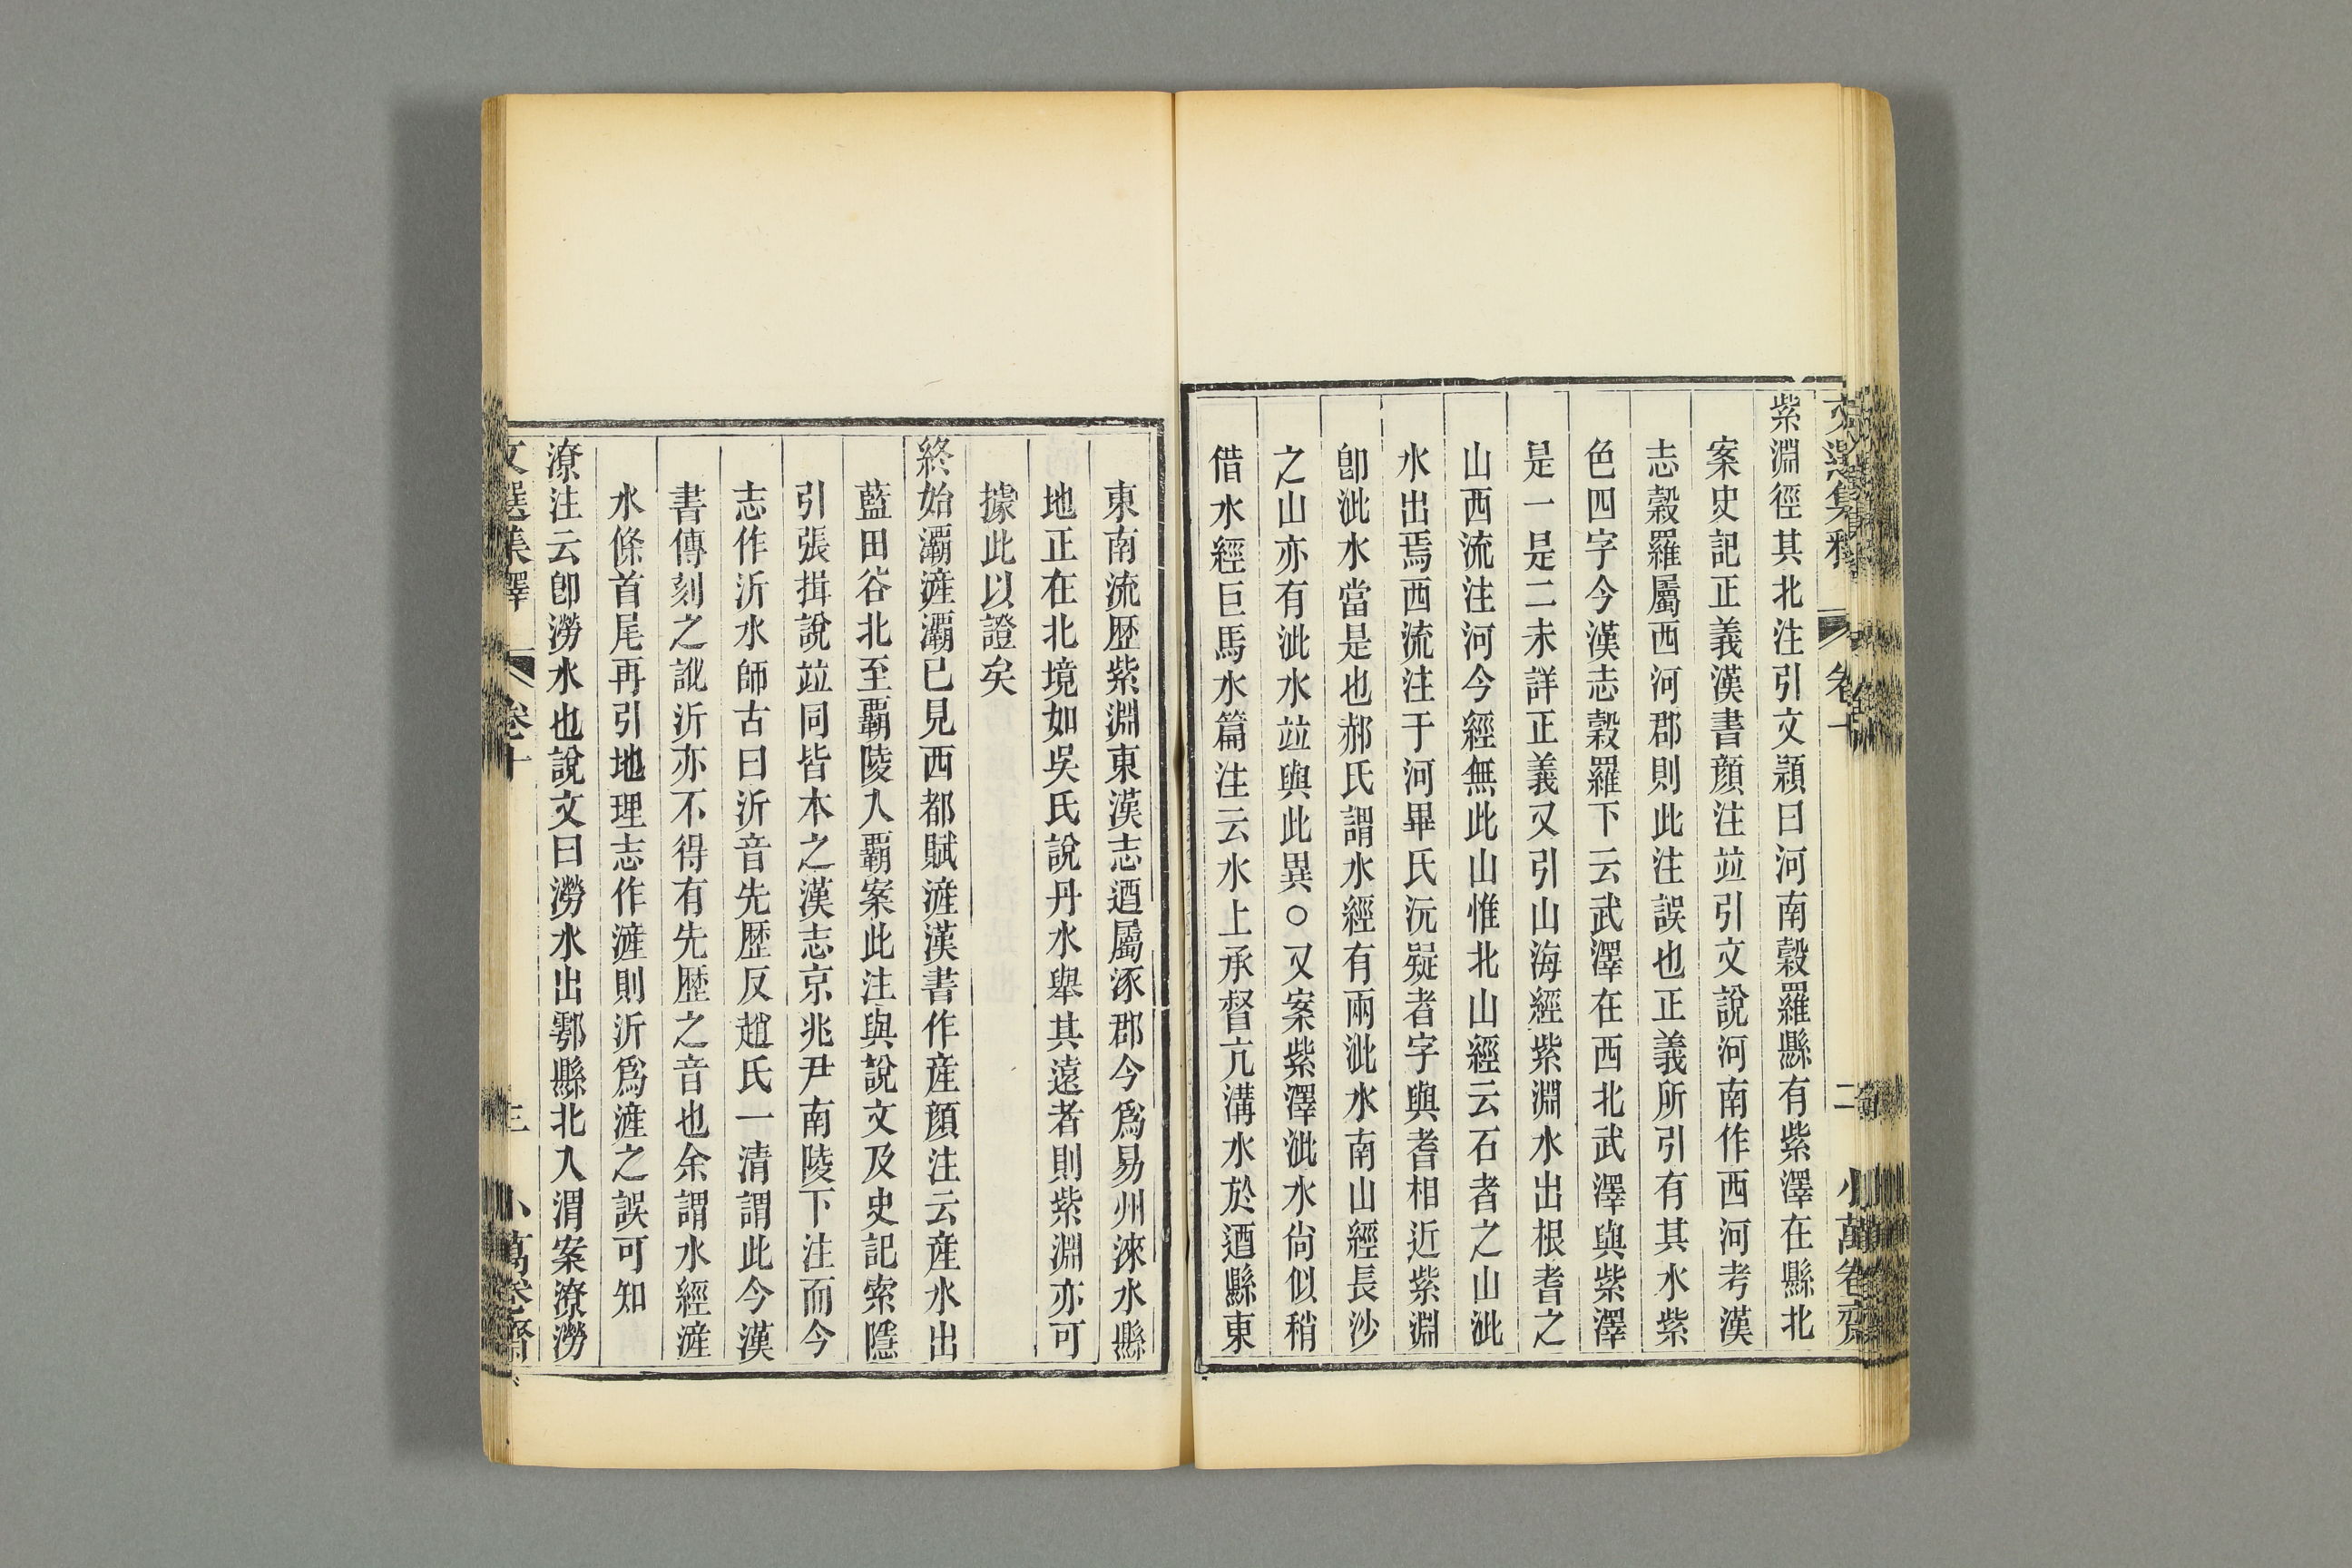 文選集釋 卷十 二 小萬卷齋
紫淵徑其北注引文潁曰河南穀羅縣有紫澤在縣北
案史記正義漢書顔注竝引文說河南作西河考漢
志穀羅屬西河郡則此注誤也正義所引有其水紫
色四字今漢志穀羅下云武澤在西北武澤與紫澤
是一是二未詳正義又引山海經紫淵水出根耆之
山西流注河今經無此山惟北山經云石者之山泚
水出焉西流注于河畢氏沅疑者字與耆相近紫淵
卽泚水當是也郝氏謂水經有兩泚水南山經長沙
之山亦有泚水竝與此異○又案紫澤泚水尙似稍
借水經巨馬水篇注云水上承督亢溝水於遒縣東
東南流歷紫淵東漢志遒屬涿郡今爲易州淶水縣
地正在北境如吳氏說丹水舉其遠者則紫淵亦可
據此以證矣
終始灞滻灞已見西都賦滻漢書作產顔注云產水出
藍田谷北至覇陵入覇案此注與說文及史記索隱
引張揖說竝同皆本之漢志京兆尹南陵下注而今
志作沂水師古曰沂音先歷反趙氏一清謂此今漢
書傳刻之訛沂亦不得有先歷之音也余謂水經滻
水條首尾再引地理志作滻則沂爲滻之誤可知
潦注云卽澇水也說文曰澇水出鄠縣北入渭案潦澇
文選集釋 卷十 三 小萬卷齋